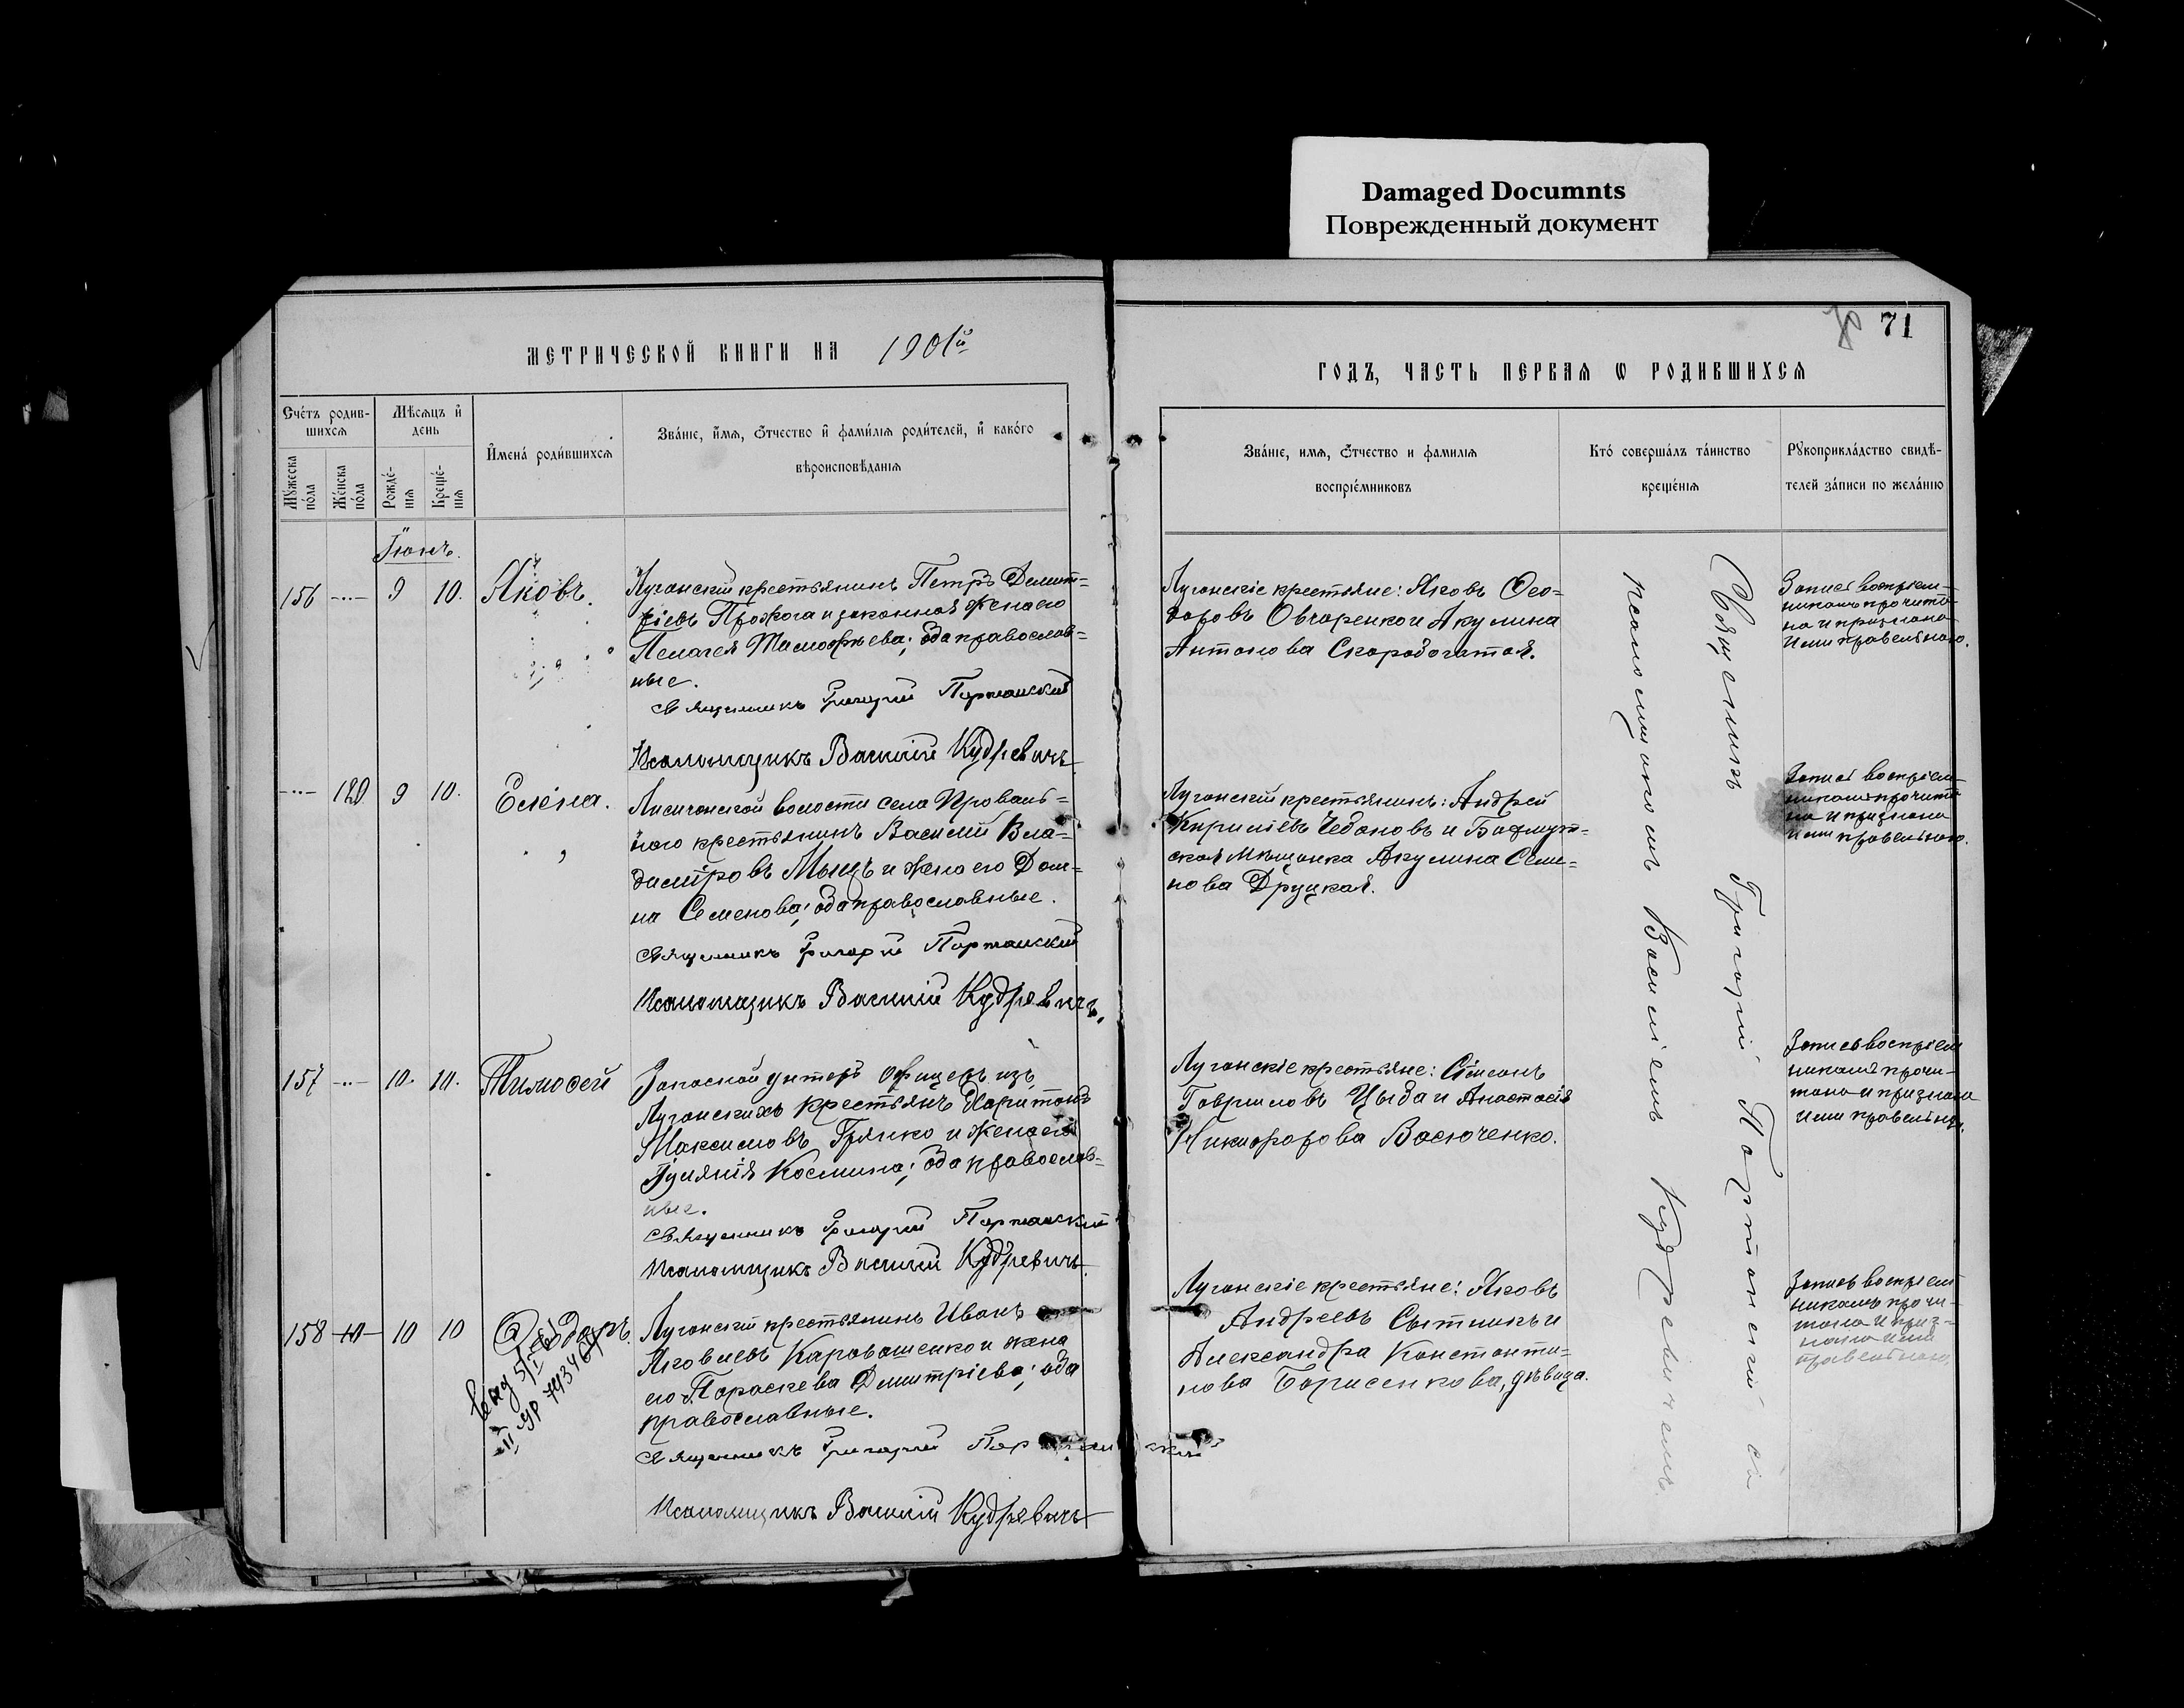 Damaged Documnts
Поврежденный документ
71
МЕТРИЧЕСКОЙ КНИГИ НА 1901й
ГОДЪ, ЧАСТЬ ПЕРВАЯ Ѡ РОДИВШИХСЯ
Счетъ родив-
шихся
Мѣсяцъ и
день
Мужеска
пола
Женска
пола
Рожде-
нія
Креще-
нія
Имена родившихся
Званіе, имя, отчество и фамилія родителей, и какого
вѣроисповѣданія
Званіе, имя, отчество и фамилія
воспріемниковъ
Кто совершалъ таинство
крещенія
Рукоприкладство свидѣ-
телей записи по желанію
Іюнь.
156 9 10. Яковъ.
Луганскій крестьянинъ Петръ Димит-
ріевъ Прожога и законная жена его
Пелагея Тимофѣева; оба православ-
ные.
Священникъ Григорій Портанскій
Псаломщикъ Василій Кудревичъ
Луганскіе крестьяне: Яковъ Ѳео-
доровъ Овчаренко и Акулина
Антонова Скоробогатая.
Запись воспріем-
никамъ прочита-
на и признана
ими правельною.
120 9 10. Елена.
Лисичанской волости села Проваль-
наго крестьянинъ Василій Вла-
диміровъ Мыцъ и жена его Дом-
на Семенова; оба православные.
Священникъ Григорій Портанскій
Псаломщикъ Василій Кудревичъ.
Луганскій крестьянинъ: Андрей
Кириловъ Чебановъ и Бахмут-
ская мѣщанка Акулина Семе-
нова Друцкая.
Запись воспріем-
никамъ прочита-
на и признана
ими правельною.
157 10. 10. Тимофей
Запасной унтеръ офицеръ изъ
Луганскихъ крестьянъ Харитонъ
Максимовъ Грянко и жена его
Іуліанія Космина; оба православ-
ные.
Священникъ Григорій Портанскій
Псаломщикъ Василій Кудревичъ.
Луганскіе крестьяне: Сімеонъ
Гавриловъ Цыба и Анастасія
Никифорова Васюченко.
Запись воспріем
никамъ прочи-
тана и признана
ими правельною.
158 10 10 10 Ѳеодоръ.
Луганскій крестьянинъ Иванъ
Яковлевъ Каровашенко и жена
его Параскева Димитріева; оба
православные.
Священникъ Григорій Портанскій
Псаломщикъ Василій Кудревичъ
Луганскіе крестьяне: Яковъ
Андреевъ Сытникъ и
Александра Константи-
нова Борисенкова, дѣвица.
Запись воспріем
никамъ прочи-
тана и приз-
нана ими
правельною.
Священникъ Григорій Портанскій съ
псаломщикомъ Василіемъ Кудревичемъ